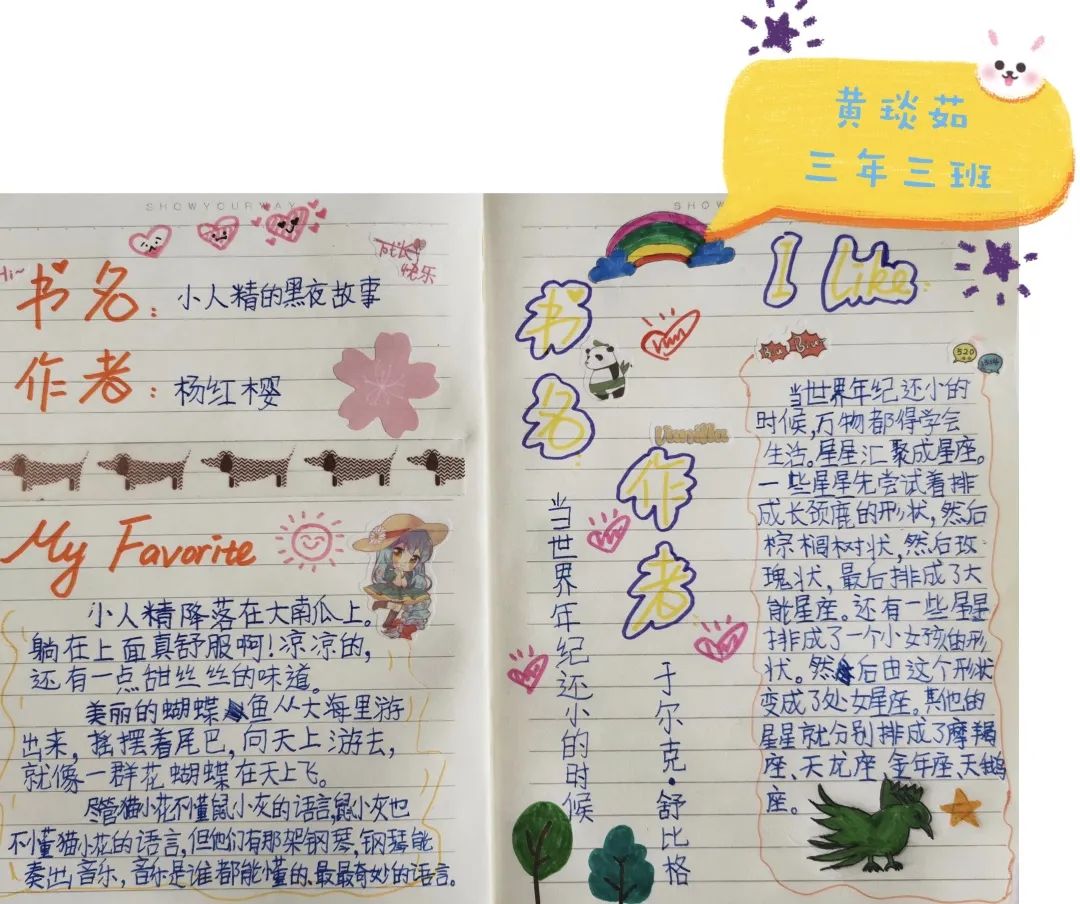 黄琰茹
三年三班
SHOWYOURWAY
Hi~
成长
快乐
书名：小人精的黑夜故事
作者：杨红樱
My Favorite
小人精降落在大南瓜上。
躺在上面真舒服啊！凉凉的，
还有一点甜丝丝的味道。
美丽的蝴蝶鱼从大海里游
出来，摇摆着尾巴，向天上游去，
就像一群花蝴蝶在天上飞。
尽管猫小花不懂鼠小灰的语言，鼠小灰也
不懂猫小花的语言，但他们有那架钢琴，钢琴能
奏出音乐，音乐是谁都能懂的、最最奇妙的语言。
SHOW
书名
当世界年纪还小的时候
作者
于尔克·舒比格
I like
Biu Biu
520
1314
Vanilla
当世界年纪还小的
时候，万物都得学会
生活。星星汇聚成星座。
一些星星先尝试着排
成长颈鹿的形状，然后
棕榈树状，然后玫
瑰状，最后排成了大
熊星座。还有一些星星
排成了一个小女孩的形
状。然后由这个形状
变成了处女星座。其他的
星星就分别排成了摩羯
座、天龙座、金牛座、天鹅
座。